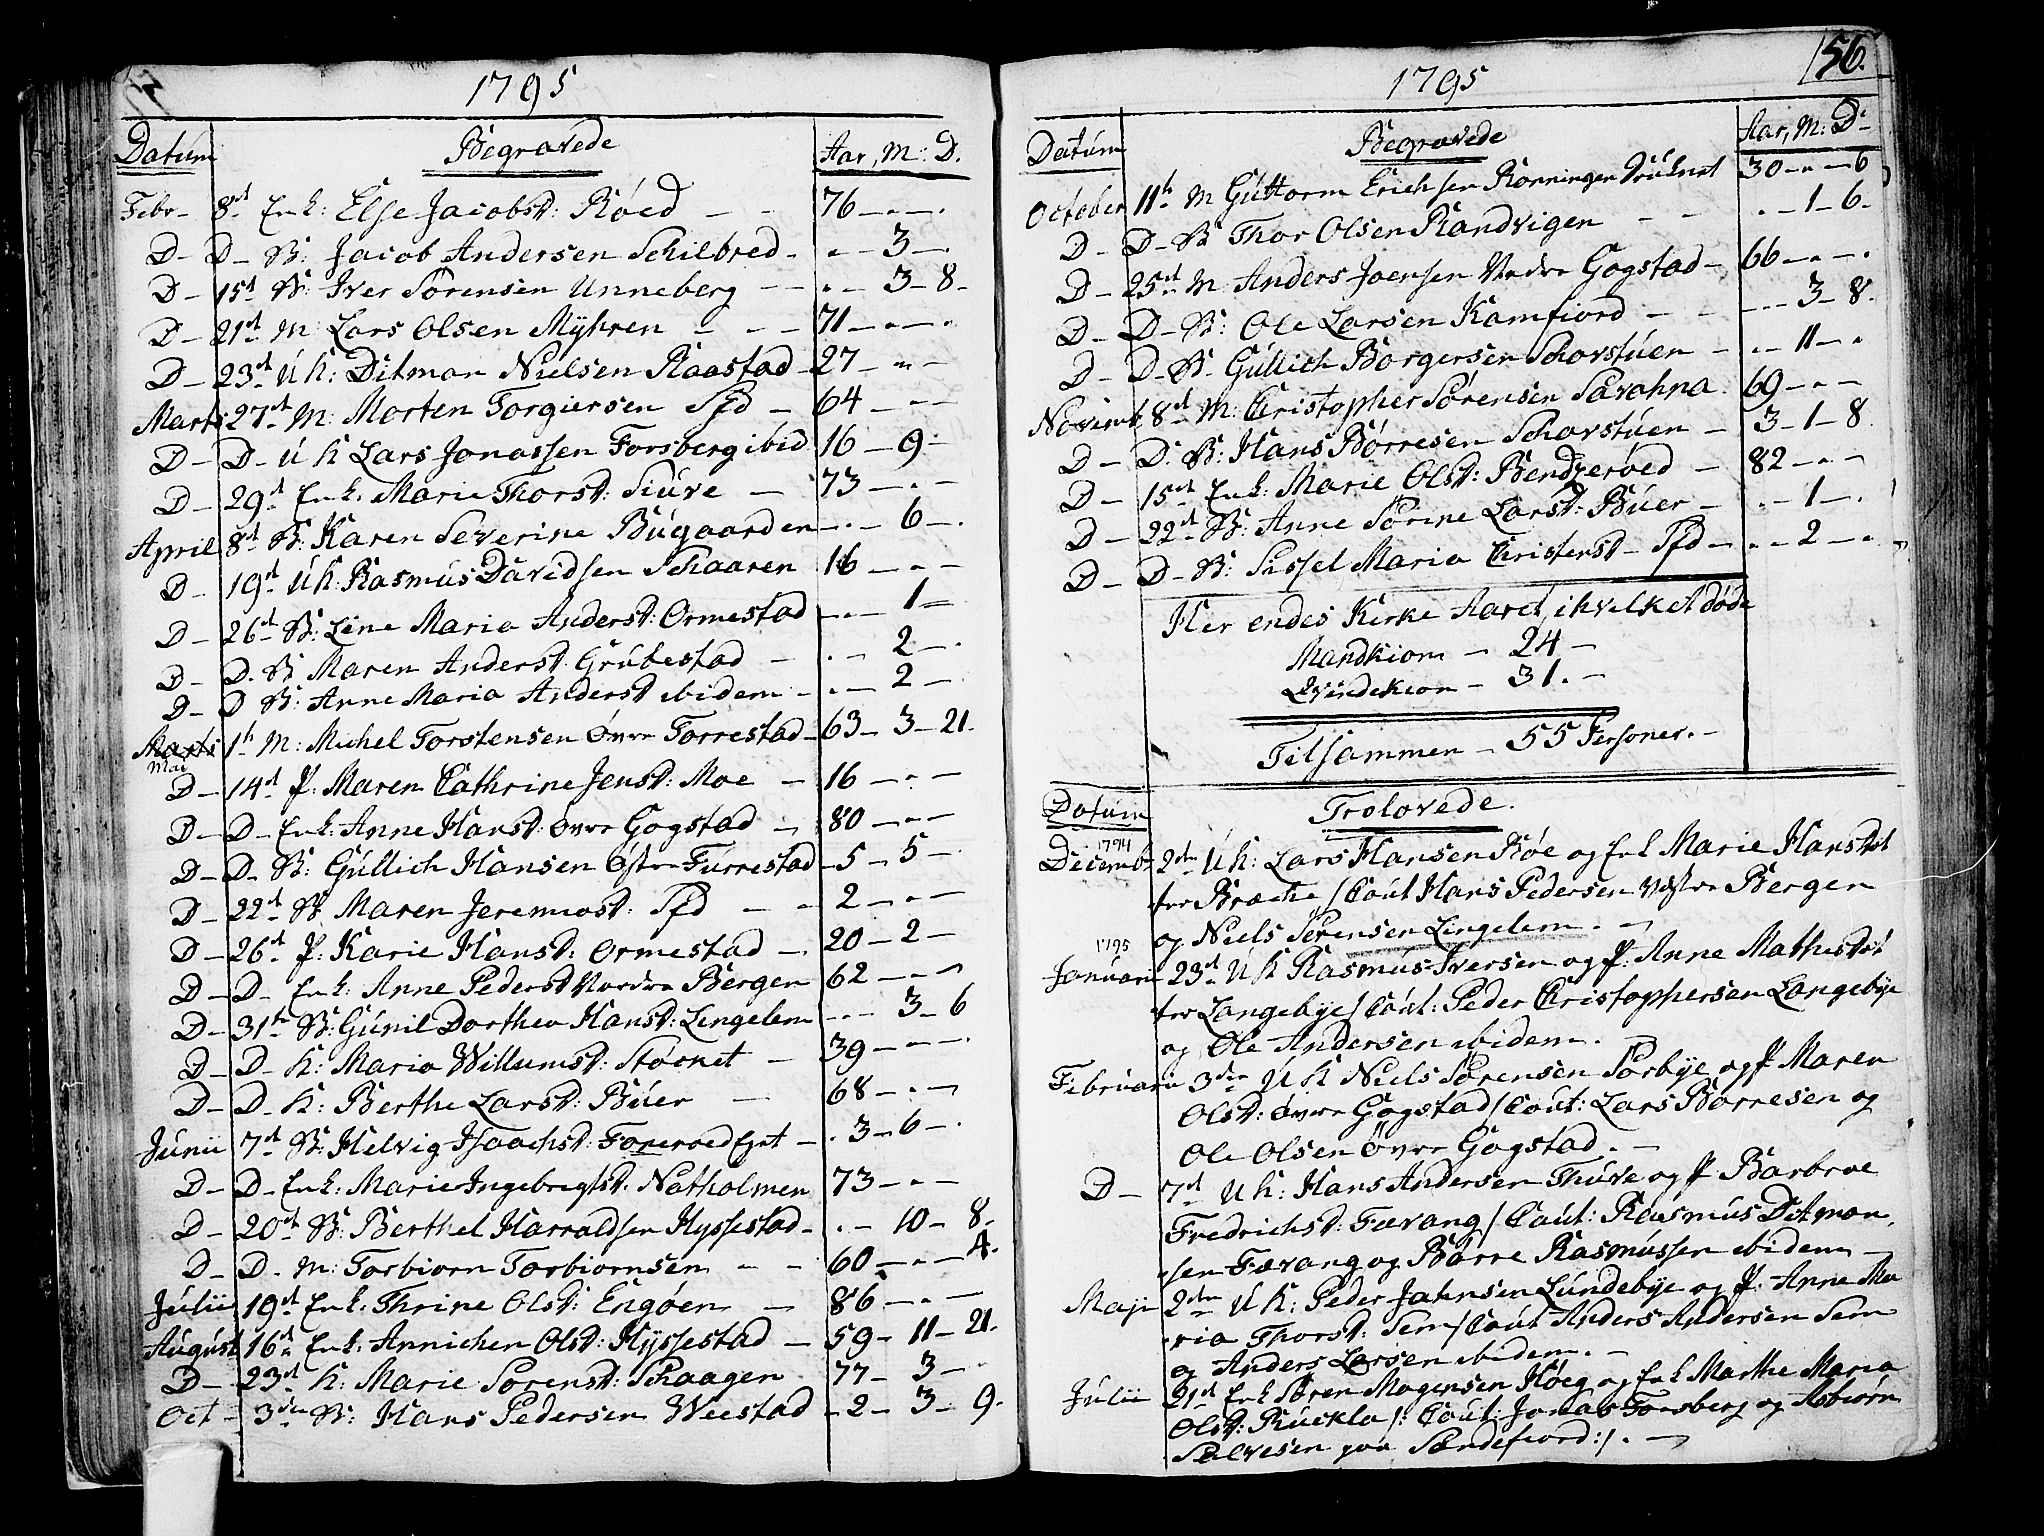 1795
Datum Begravede Aar, M: D.
Febr- 8d Enk: Else Jacobsd: Röed - - 76 - " - "
D- D- B: Jacob Andersen Schilbred - " - 3 - "
D- 15d B: Iver Sörensen Unneberg - - " - 3 - 8
D- 21d M: Lars Olsen Myhren - - - 71 - " - "
D- 23d U K: Ditman Nielsen Raastad - 27 - " -
Marti 27d M: Morten Torgiersen Sfd - 64 - " -
D- D- U K Lars Jonassen Forsberg ibid 16 - 9 -
D- 29d Enk. Marie Thorsd: Siúve - 73 - " -
April 8d B: Karen Severine Búgaarden - " - 6 - "
D- 19d U K: Rasmús Davidsen Schaaren 16 - " -
D- 26d B: Line Maria Andersd: Ormestad " - 1 -
D- D. B Maren Andersd. Grúbestad - " - 2 - "
D- D B: Anne Maria Andersd ibidem - " - 2 -
Marti Mai 1h M: Michel Torstensen övre Torrestad - 63 - 3 - 21
D- 14d P: Maren Cathrine Jensd: Moe - 16 - " -
D- D- Enk: Anne Hansd: övre Gogstad - 80 - " -
D- D- B: Gúllich Hansen Östre Furrestad - 5 - 5 -
D- 22d B Maren Jeremiasd: Sfd - - 2 - " -
D- 26d P: Karie Hansd: Ormestad - 20 - 2 -
D- D- Enk: Anne Pedersd Nordre Bergen 62 - " -
D- 31h B: Gúnil Dorthea Hansd: Lingelem - " - 3 - 6
D- D- K: Maria Willumsd: Stöcket - 39 - " - "
D- D- K: Berthe Larsd: Búer - 68 - " -
Junii 7d B: Helvig Isaachsd: Foreroed Eget - " 3 - 6 - "
D- D- Enk: Marie Ingebregtsd. Natholmen 73 - " -
D- 20d B: Berthel Harraldsen Hyssestad - " - 10 - 8
D- D- M: Torbiorn Torbiornsen - - 60 - " - 4
Julii 19d Enk: Thrine Olsd: Engöen - 86 - " -
Augúst 16d Enk: Annichen Olsd: Hyssestad - 59 - 11 - 21
D- 23d K: Marie Sörensd: Schaagen 77 - 3 - "
Oct - 3de B: Hans Pedersen Weestad - 2 - 3 - 9
156.
1795
Datúm Begravede Aar, M: D
October 11h M Gúttorm Erichsen Ronningen 30 - " - 6
D- D- B Thor Olsen Randvigen - - " - 1 - 6
D- 25d M: Anders Joensen Nedre Gogstad - 66 - " - "
D- D- B: Ole Larsen Kamfiord - - " - 3 - 8
D- D- B- Gúllich Borgersen Schovstúen - " - 11 - "
Novemb 8d M: Christopher Sörensen Saxahna 69 - " -
D- D: B: Hans Börresen Schovstúen - 3 - 1 - 8
D- 15d Enk: Marie Olsd: Bendzeröed - 82 - " -
D- 22d B: Anne Sörine Larsd: Búer - " - 1 - "
D- D- B: Sissel Maria Christensd - Sfd - " - 2 - "
Her endes Kirke Aaret, ihvilket döde
Mandkion - 24 -
Qvindekion - 31. -
Tilsammen - 55 Personer. -
Datúm Trolovede.
1794
Decemb 2den U K: Lars Hansen Röe og Enk Marie Hansdat
ter Broche / Caut Hans Pedersen Vestre Bergen
og Niels Sörensen Lingelem. -
1795
Januari 23d U K Rasmús Iversen og P: Anne Mathisdat
ter Langebye / Caut: Peder Christophersen Langebye
og Ole Andersen ibidem. -
Februarii 3den U K Niels Sörensen Sörbye og P Maren
Olsd: övre Gogstad / Caut: Lars Börresen og
Ole Olsen övre Gogstad. -
D- 7d U K: Hans Andersen Thúve og P Barbroe
Fredrichsd: Færvang / Caut: Rasmús Ditman
sen Færvang og Börre Rasmússen ibidem -
Maji 2den U K: Peder Jahnsen Lúndebye og P. Anne Ma
ria Thorsd: Sem / Caut Anders Andersen Sem
og Anders Larsen ibidem. -
Julii 21d Enk Sören Mogensen Höeg og Enk Marthe Maria
Olsd: Ruckla /: Caut: Jonas Forsberg og Asbiörn
Salvesen paa Sandefiord :/. -